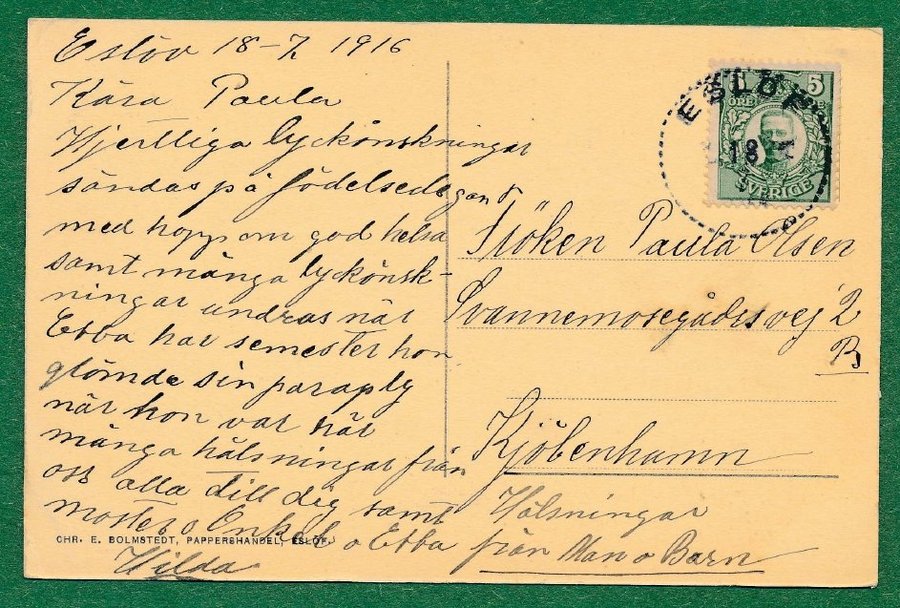 Eslöv 18-7 1916
Kära Paula
Hjertliga lyckönskningar
sändas på födelsedagen
med hopp om god helsa
samt många lyckönsk-
ningar undras när
Ebba har semester hon
glömde sin paraply
när hon var här
många hälsningar från
oss alla till dig samt
moster o Enkel o Ebba
Hilda
CHR. E. BOLMSTEDT, PAPPERSHANDEL, ESLÖF.
ESLÖF
18
5
ÖRE
SVERIGE
Fröken Paula Olsen
Svannemosegårdsvej 2
B
Kjöbenhamn
Hälsningar
från Man o Barn